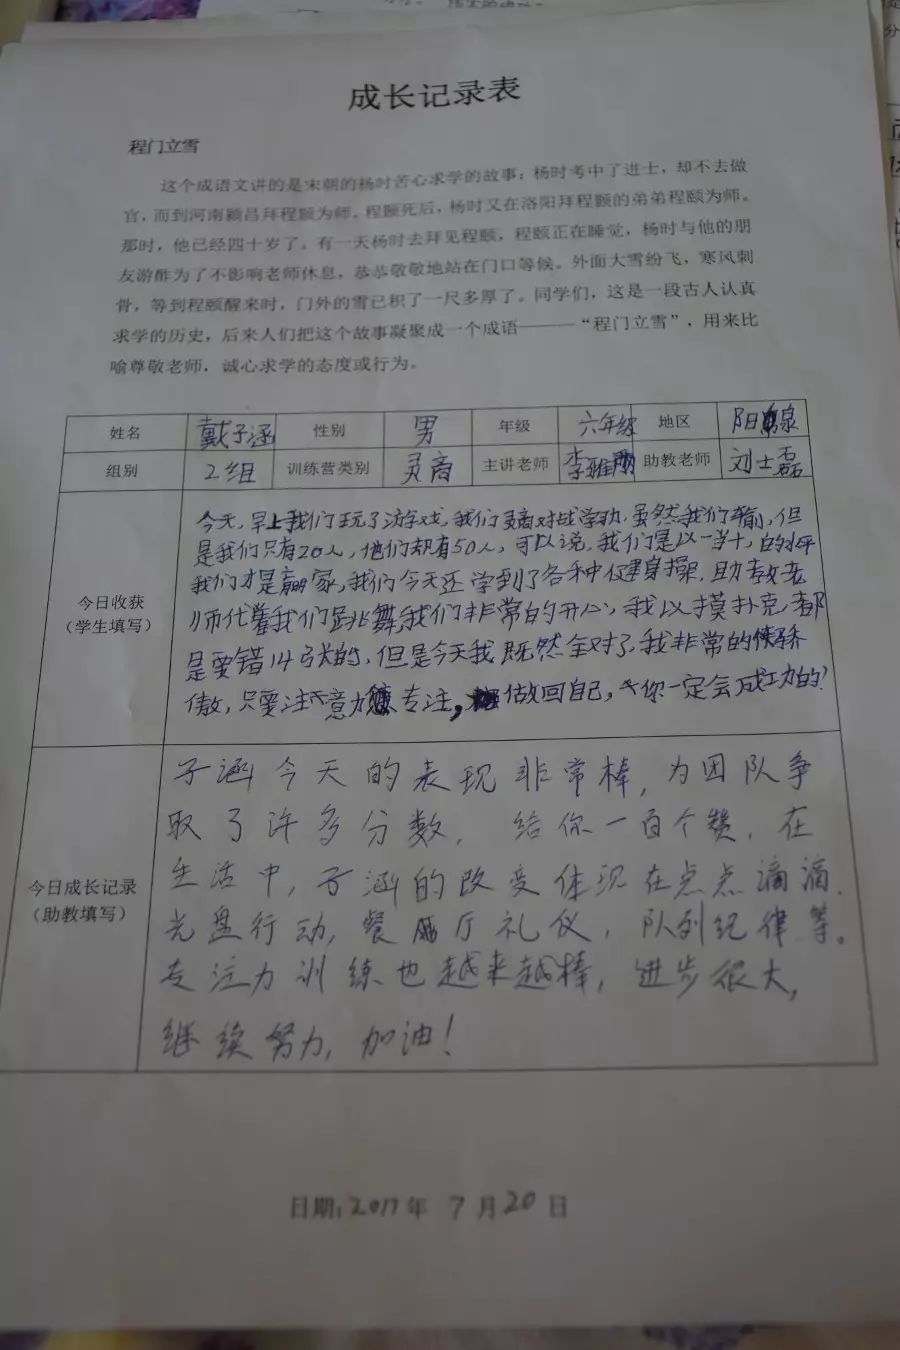 成长记录表
程门立雪
这个成语文讲的是宋朝的杨时苦心求学的故事：杨时考中了进士，却不去做
官，而到河南颍昌拜程颢为师。程颢死后，杨时又在洛阳拜程颢的弟弟程颐为师。
那时，他已经四十岁了。有一天杨时去拜见程颐，程颐正在睡觉，杨时与他的朋
友游酢为了不影响老师休息，恭恭敬敬地站在门口等候。外面大雪纷飞，寒风刺
骨，等到程颐醒来时，门外的雪已积了一尺多厚了。同学们，这是一段古人认真
求学的历史，后来人们把这个故事凝聚成一个成语———“程门立雪”，用来比
喻尊敬老师，诚心求学的态度或行为。
姓名 戴子涵 性别 男 年级 六年级 地区 阳泉
组别 2组 训练营类别 灵商 主讲老师 李雅 助教老师 刘士磊
今日收获
（学生填写）
今天，早上我们玩了游戏，我们灵商对战学动，虽然我们输，但
是我们只有20人，他们却有50人，可以说，我们是以一当十，的水平
我们才是赢家，我们今天还学到了各种健身操，助教老
师代着我们跳舞，我们非常的开心，我以摸扑克都
是要错14张的，但是今天我既然全对了，我非常的骄
傲，只要注意力专注，做回自己，你一定会成功的？
今日成长记录
（助教填写）
子涵今天的表现非常棒，为团队争
取了许多分数，给你一百个赞，在
生活中，子涵的改变体现在点点滴滴，
光盘行动，餐厅礼仪，队列纪律等。
专注力训练也越来越棒，进步很大，
继续努力，加油！
日期：2017年 7月20日